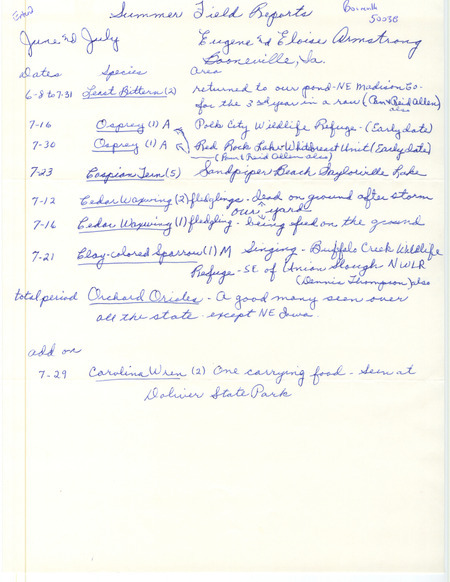 Entered
Summer Field Reports
50038
June & July
Eugene & Eloise Armstrong
Booneville, Ia.
Dates Species Area
6-8 to 7-31 Least Bittern (2) returned to our pond - NE Madison Co. for the 3rd year in a row (Pam & Reid Allen) also
7-16 Osprey (1) A Polk City Wildlife Refuge - (Early date)
7-30 Osprey (1) A Red Rock Lake - Whitebreast Unit (Early date)
(Pam & Reid Allen also)
7-23 Caspian Tern (5) Sandpiper Beach Saylorville Lake
7-12 Cedar Waxwing (2) fledglings - dead on ground after storm
our yard
7-16 Cedar Waxwing (1) fledgling - being feed on the ground
7-21 Clay-colored Sparrow (1) M Singing - Buffalo Creek Wildlife
Refuge - SE of Union Slough NWLR
(Dennis Thompson) also
total period Orchard Orioles - A good many seen over
all the state - except NE Iowa
add on
7-29 Carolina Wren (2) One carrying food - Seen at
Dolliver State Park